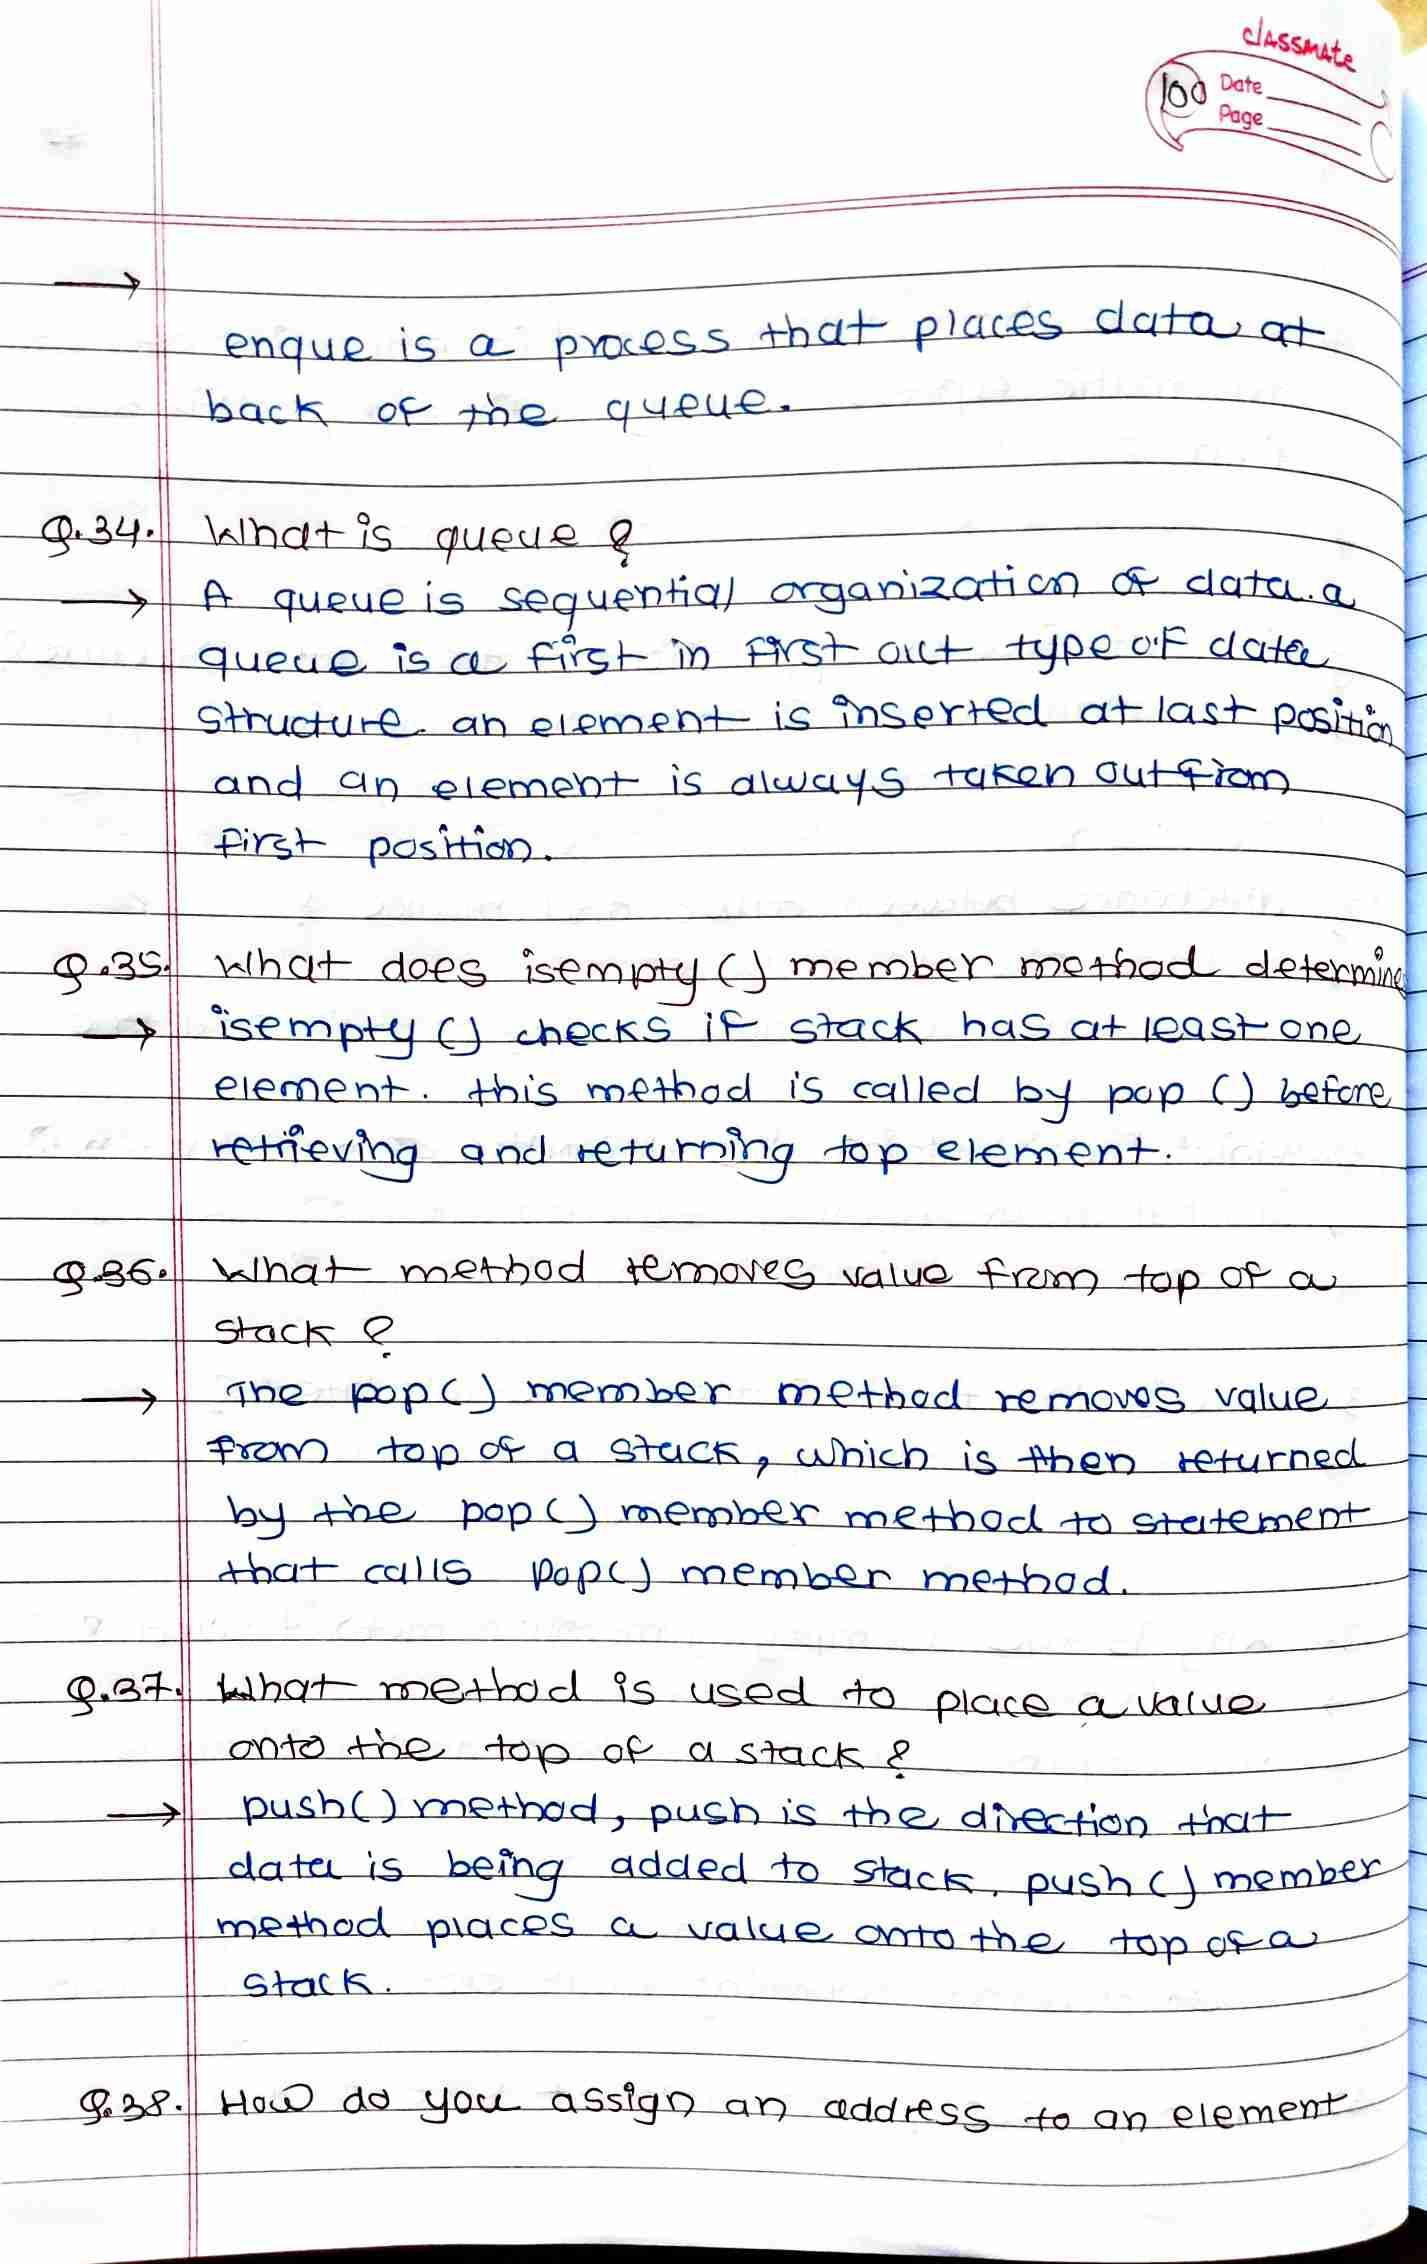 classmate
100 Date
Page
→
enque is a process that places data at
back of the queue.
Q.34. What is queue ?
→ A queue is sequential organization of data. a
queue is a first in first out type of data
structure. an element is inserted at last position
and an element is always taken out from
first position.
Q.35. What does isempty() member method determine
→ isempty() checks if stack has at least one
element. this method is called by pop() before
retrieving and returning top element.
Q.36. What method removes value from top of a
stack ?
→ The pop() member method removes value
from top of a stack, which is then returned
by the pop() member method to statement
that calls pop() member method.
Q.37. What method is used to place a value
onto the top of a stack ?
→ push() method, push is the direction that
data is being added to stack. push() member
method places a value onto the top of a
stack.
Q.38. How do you assign an address to an element